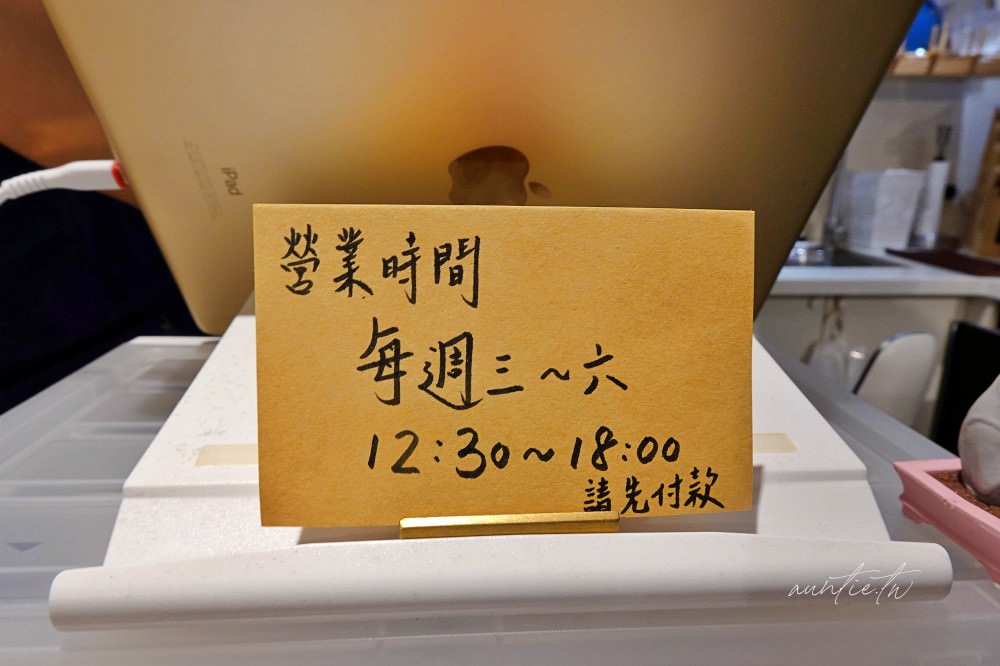 iPad
營業時間
每週三~六
12:30~18:00
請先付款
auntie.tw